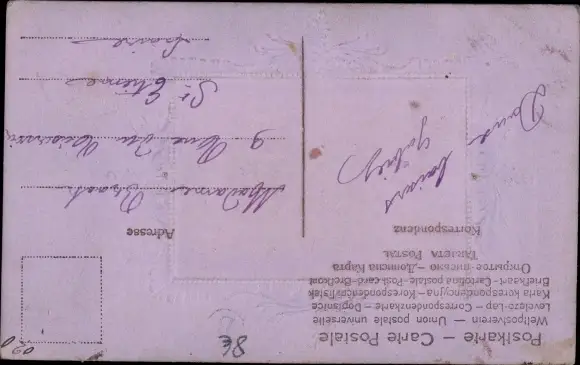 Postkarte — Carte Postale
Weltpostverein — Union postale universelle
Levelező-Lap – Correspondenzkarte – Dopisnice
Karta korespondencyjna – Korespondenční lístek
Briefkaart – Cartolina postale – Post card – Brefkort
Открытое письмо – Дописна Карта
TARJETA POSTAL
Korrespondenz
Doux
baisers
Adresse
Madame
9 Rue
St Etienne
Loire
8€
020